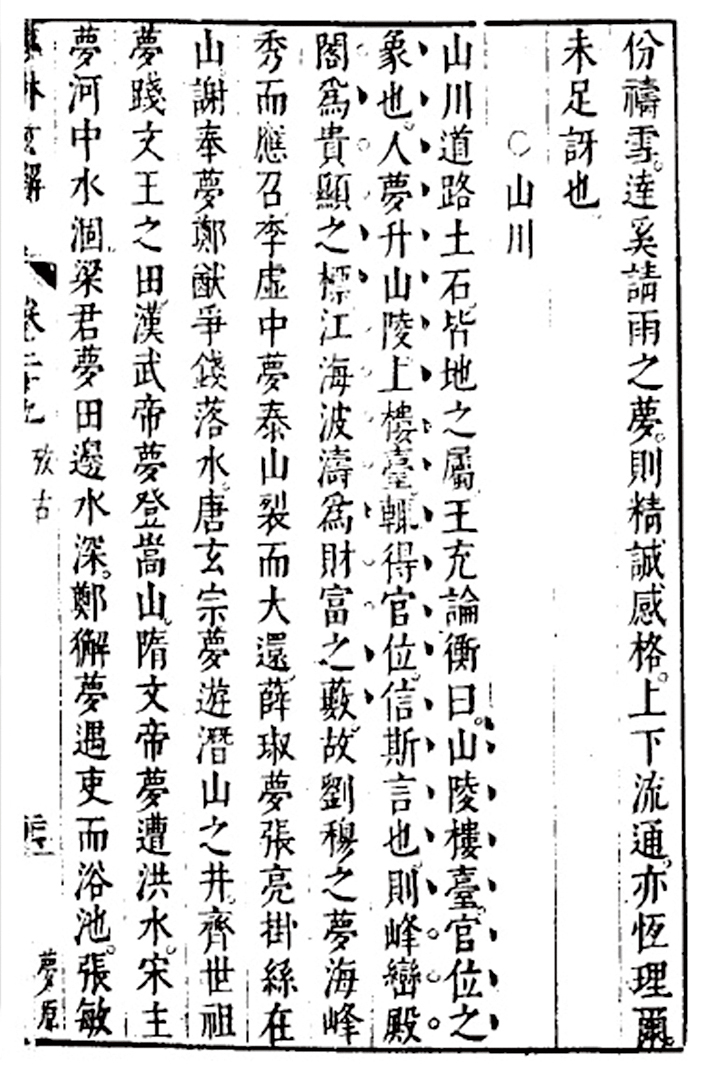 份禱雪。逹奚請雨之夢。則精誠感格。上下流通。亦恆理爾。
未足訝也。
○山川
山川道路土石。皆地之屬。王充論衡曰。山陵樓臺。官位之
象也。人夢升山陵上樓臺。輒得官位。信斯言也。則峰巒殿
閣爲貴顯之標。江海波濤爲財富之藪。故劉穆之夢海峰
秀而應召。李虛中夢泰山裂而大還。薛琡夢張亮掛絲在
山。謝奉夢鄭猷爭錢落水。唐玄宗夢遊潛山之井。齊世祖
夢踐文王之田。漢武帝夢登嵩山。隋文帝夢遭洪水。宋主
夢河中水涸。梁君夢田邊水深。鄭獬夢遇吏而浴池。張敏
夢林玄解 卷二十九 攷古 夢原